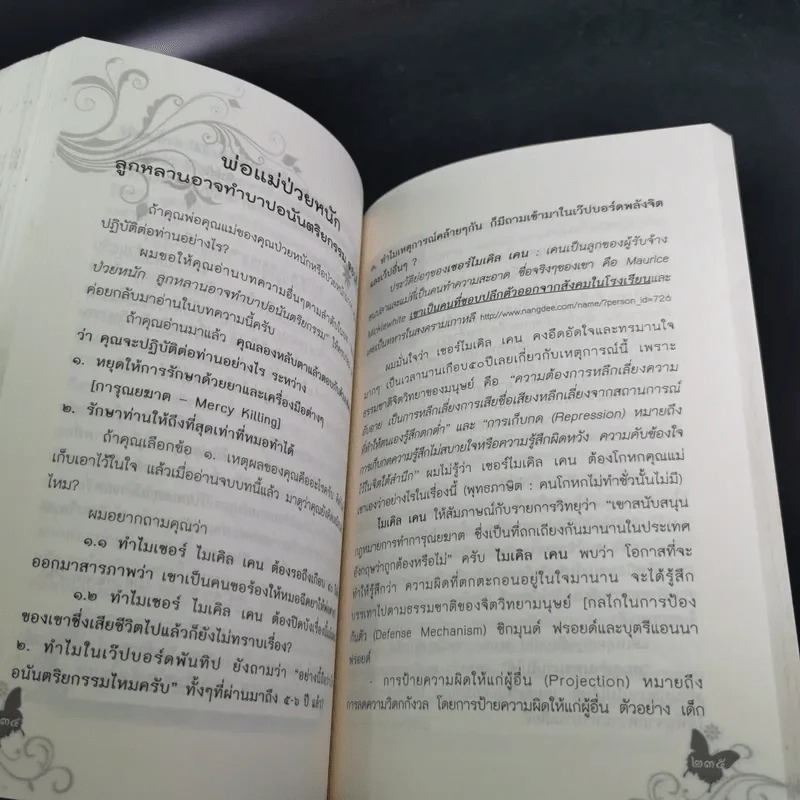 พ่อแม่ป่วยหนัก
ลูกหลานอาจทำบาปอนันตริยกรรม
ถ้าคุณพ่อคุณแม่ของคุณป่วยหนักหรือป่วย
ปฏิบัติต่อท่านอย่างไร?
ผมขอให้คุณอ่านบทความอื่นๆตามลำดับ
ป่วยหนัก ลูกหลานอาจทำบาปอนันตริยกรรม"
ค่อยกลับมาอ่านในบทความนี้ครับ
ถ้าคุณอ่านมาแล้ว คุณลองหลับตาแล้วตอบ
ว่า คุณจะปฏิบัติต่อท่านอย่างไร ระหว่าง
๑. หยุดให้การรักษาด้วยยาและเครื่องมือต่างๆ
[การุณยฆาต – Mercy Killing]
๒. รักษาท่านให้ถึงที่สุดเท่าที่หมอทำได้
ถ้าคุณเลือกข้อ ๑. เหตุผลของคุณคืออะไรครับ
เก็บเอาไว้ในใจ แล้วเมื่ออ่านจบบทนี้แล้ว มาดูว่าคุณยัง
ไหม?
ผมอยากถามคุณว่า
๑.๑ ทำไมเซอร์ ไมเคิล เคน ต้องรอถึงเกือบ
ออกมาสารภาพว่า เขาเป็นคนขอร้องให้หมอฉีดยาให้
๑.๒ ทำไมเซอร์ ไมเคิล เคน ต้องปิดบังเรื่องนี้
ของเขาซึ่งเสียชีวิตไปแล้วก็ยังไม่ทราบเรื่อง?
๒. ทำไมในเว็ปบอร์ดพันทิป ยังถามว่า "อย่างนี้
อนันตริยกรรมไหมครับ" ทั้งๆที่ผ่านมาถึง ๕-๖ ปี แล้ว?
ทำไมเหตุการณ์คล้ายๆกัน ก็มีถามเข้ามาในเว็ปบอร์ดพลังจิต
และเว็ปอื่นๆ ?
ประวัติย่อๆของเซอร์ไมเคิล เคน : เคนเป็นลูกของผู้รับจ้าง
และแม่ที่เป็นคนทำความสะอาด ชื่อจริงๆของเขา คือ Maurice
Micklewhite เขาเป็นคนที่ชอบปลีกตัวออกจากสังคมในโรงเรียนและ
เคยเป็นทหารในสงครามเกาหลี http://www.nangdee.com/name/?person_id=726
ผมมั่นใจว่า เซอร์ไมเคิล เคน คงอึดอัดใจและทรมานใจ
มากๆ เป็นเวลานานเกือบ๕๐ปีเลยเกี่ยวกับเหตุการณ์นี้ เพราะ
ธรรมชาติจิตวิทยาของมนุษย์ คือ "ความต้องการหลีกเลี่ยงความ
อับอาย เป็นการหลีกเลี่ยงการเสียชื่อเสียงหลีกเลี่ยงจากสถานการณ์
ที่ทำให้ตนเองรู้สึกตกต่ำ" และ "การเก็บกด (Repression) หมายถึง
การเก็บกดความรู้สึกไม่สบายใจหรือความรู้สึกผิดหวัง ความคับข้องใจ
ไว้ในจิตใต้สำนึก" ผมไม่รู้ว่า เซอร์ไมเคิล เคน ต้องโกหกคุณแม่
เขาเองว่าอย่างไรในเรื่องนี้ (พุทธภาษิต : คนโกหกไม่ทำชั่วนั้นไม่มี)
ไมเคิล เคน ให้สัมภาษณ์กับรายการวิทยุว่า "เขาสนับสนุน
กฎหมายการทำการุณยฆาต ซึ่งเป็นที่ถกเถียงกันมานานในประเทศ
อังกฤษว่าถูกต้องหรือไม่" ครับ ไมเคิล เคน พบว่า โอกาสที่จะ
ทำให้รู้สึกว่า ความผิดที่ตกตะกอนอยู่ในใจมานาน จะได้รู้สึก
บรรเทาไปตามธรรมชาติของจิตวิทยามนุษย์ [กลไกในการป้อง
กันตัว (Defense Mechanism) ซิกมุนด์ ฟรอยด์และบุตรีแอนนา
ฟรอยด์
- การป้ายความผิดให้แก่ผู้อื่น (Projection) หมายถึง
การลดความวิตกกังวล โดยการป้ายความผิดให้แก่ผู้อื่น ตัวอย่าง เด็ก
๒๓๕